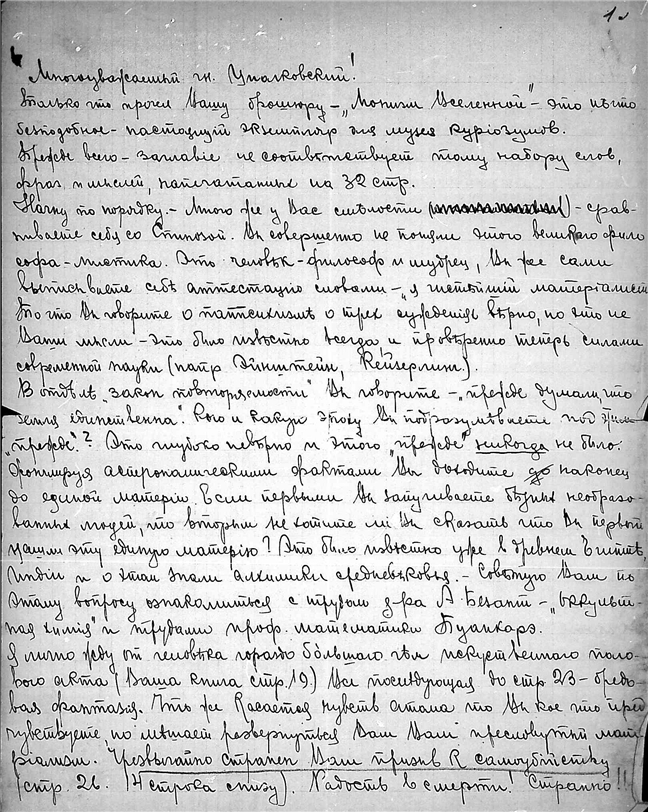 1.
Многоуважаемый гн. Циолковский!
Только что прочел Вашу брошюру – „Монизм Вселенной" – это нѣчто
бесподобное – настоящий экземпляр для музея курiозумов.
Прежде всего – заглавiе не соотвѣтствует тому набору слов,
фраз и мыслей, напечатанных на 32 стр.
Начну по порядку. – Много же у Вас смѣлости – срав-
ниваете себя со Спинозой. Вы совершенно не поняли этого великаго фило
софа – мистика. Это человѣк – философ и мудрец, Вы же сами
выписываете себѣ аттестацiю словами – „я чистѣйший матерiалист
То что Вы говорите о панпсихизмѣ о трех сужденiях вѣрно, но это не
Ваши мысли – это было извѣстно всегда и провѣренно теперь силами
современной науки (напр. Эйнштейн, Кейзерлинг).
В отдѣлѣ „закон повторяемости" Вы говорите – „прежде думали, что
земля единственна". Кого и какую эпоху Вы подразумѣваете под этим
„прежде"? Это глубоко невѣрно и этого „прежде" никогда не было.
Жонглируя астерономическими фактами Вы доходите до наконец
до единой матерiи. Если первыми Вы запугиваете бѣдных необразо-
ванных людей, то вторым не хотите ли Вы сказать что Вы первый
нашли эту единую матерiю? Это было извѣстно уже в древнем Египтѣ,
Индiи и о этом знали алхимики средневѣковья. – Совѣтую Вам по
этому вопросу ознакомиться с трудом д-ра А. Безант – „Оккульт-
ная химiя" и трудами проф. математики Пуанкарэ.
Я лично жду от человѣка гораздо бóльшаго чѣм искуственнаго поло-
вого акта (Ваша книга стр. 19.) Все последующая до стр. 23 – бредо-
вая фантазiя. Что же касается чувств атома то Вы кое что пред
чувствуете но мѣшает развернуться Вам Ваш пресловутый мат
рiализм. Чрезвычайно странен Ваш призыв к самоубiйству
(стр. 26. 14 строка снизу). Радость в смерти! Странно!!